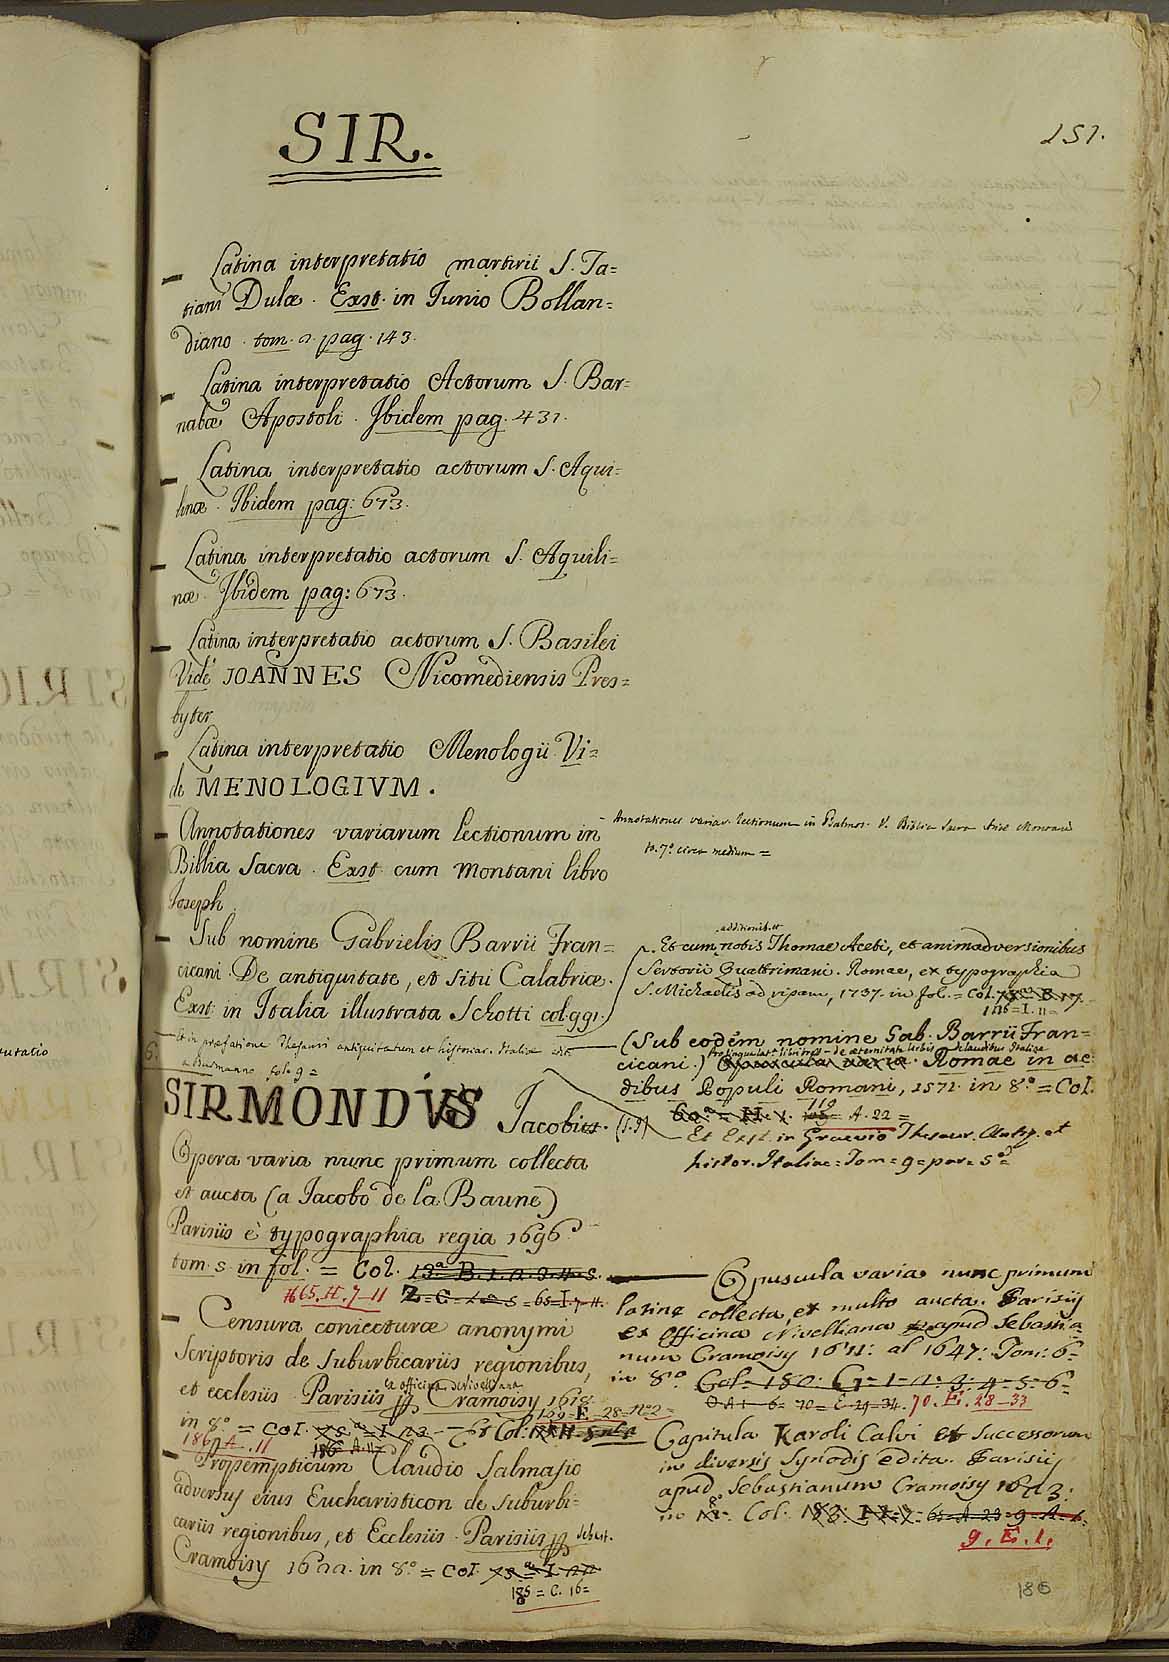 SIR.
151.
Latina interpretatio martirii S. Ta=
tiani Dulæ. Exst. in Junio Bollan=
diano. tom. 2 pag. 143.
Latina interpretatio Actorum S. Bar=
nabæ Apostoli. Ibidem pag. 431.
Latina interpretatio actorum S. Aqui=
linæ. Ibidem pag: 673.
Latina interpretatio actorum S. Aquili=
næ. Ibidem pag: 673.
Latina interpretatio actorum S. Basilei
Vide JOANNES Nicomediensis Pres=
byter
Latina interpretatio Menologii Vi=
de MENOLOGIVM.
Annotationes variarum lectionum in
Biblia Sacra. Exst. cum Montani libro
Joseph
Annotationes variar. lectionum in Psalmos. V. Biblia Sacra Ariæ Montani
to. 7.º circa medium =
Sub nomine Gabrielis Barrii Fran=
cicani. De antiquitate, et situ Calabriæ.
Exst. in Italia illustrata Schotti col. 991.
Et in præfatione Thesauri antiquitatum et historiar. Italiæ
a Burmanno fol. 9 =
additionib. et
Et cum nobis Thomae Aceti, et animadversionibus
Sertorii Quattrimani. Romae, ex typographia
S. Michaelis ad ripam, 1737. in fol. = Col.
116 = I. 11 =
(Sub eodem nomine Gab. Barrii Fran=
cicani.) Romae in ae
pro lingua lat. libri tres = de æternitate Urbis = de laudibus Italiæ
dibus Populi Romani, 1571. in 8.º = Col.
119 = A. 22 =
Et Exst. in Graevio Thesaur. Antiq. et
histor. Italiae = Tom = 9 = par = 5ª =
SIRMONDVS Jacobus. (S. J)
Opera varia nunc primum collecta
et aucta (a Jacobo de la Baune)
Parisiis è typographia regia 1696.
tom. 5. in fol. = Col. 19ª B. 1. 2. 3. 4. 5.
65. H. 7-11
Censura coniecturæ anonymi
Scriptoris de suburbicariis regionibus,
et ecclesiis. Parisiis Cramoisy 1618
in 8.º = Col.
186. A. 11
Propempticum Claudio Salmasio
adversus eius Eucharisticon de suburbi=
cariis regionibus, et Ecclesiis. Parisiis Sebast.
Cramoisy 1622. in 8.º = Col.
185 = C. 16 =
Opuscula varia nunc primum
latine collecta, et multo aucta. Parisiis
ex officina Nivelliana apud Sebastia=
num Cramoisy 1611: al 1647: Tom: 6=
in 8.º Col = 180: G = 1 = 2 = 3 = 4 = 5 = 6=
70. E. 28-33
Capitula Karoli Calvi et Successorum
in diversis Synodis edita. Parisiis
apud Sebastianum Cramoisy 1623:
in 8. Col:
9. E. 1.
186